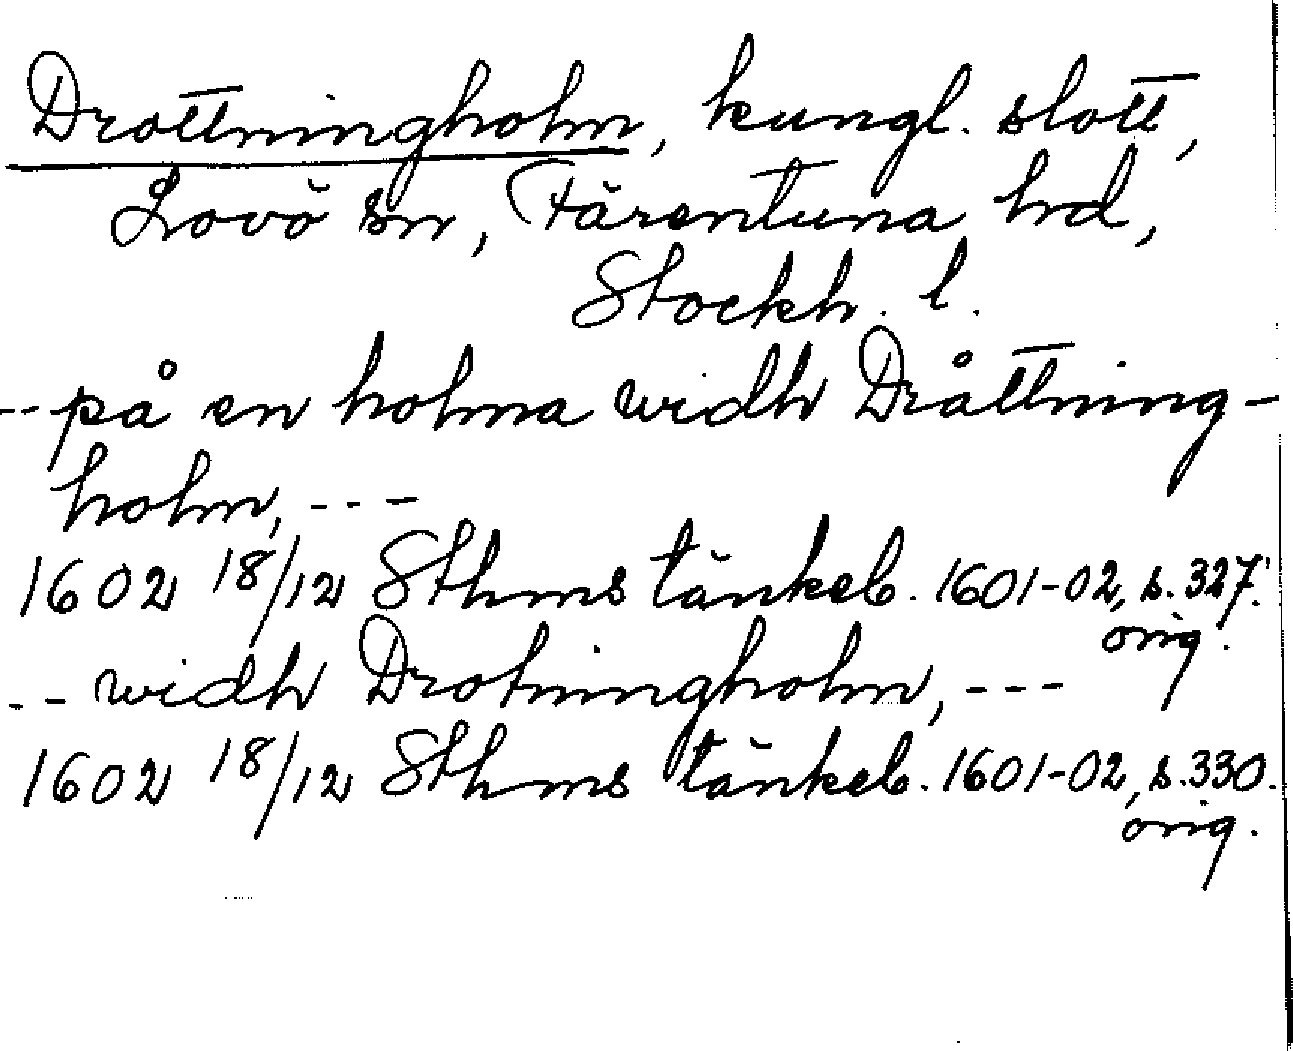 Drottningholm, kungl. slott,
Lovö sn, Färentuna hd,
Stockh. l.
-- på en holma widh Dråttning-
holm, ---
1602 18/12 Sthms tänkeb. 1601-02, s. 327.
orig.
-- widh Drotningholm, ---
1602 18/12 Sthms tänkeb. 1601-02, s. 330.
orig.